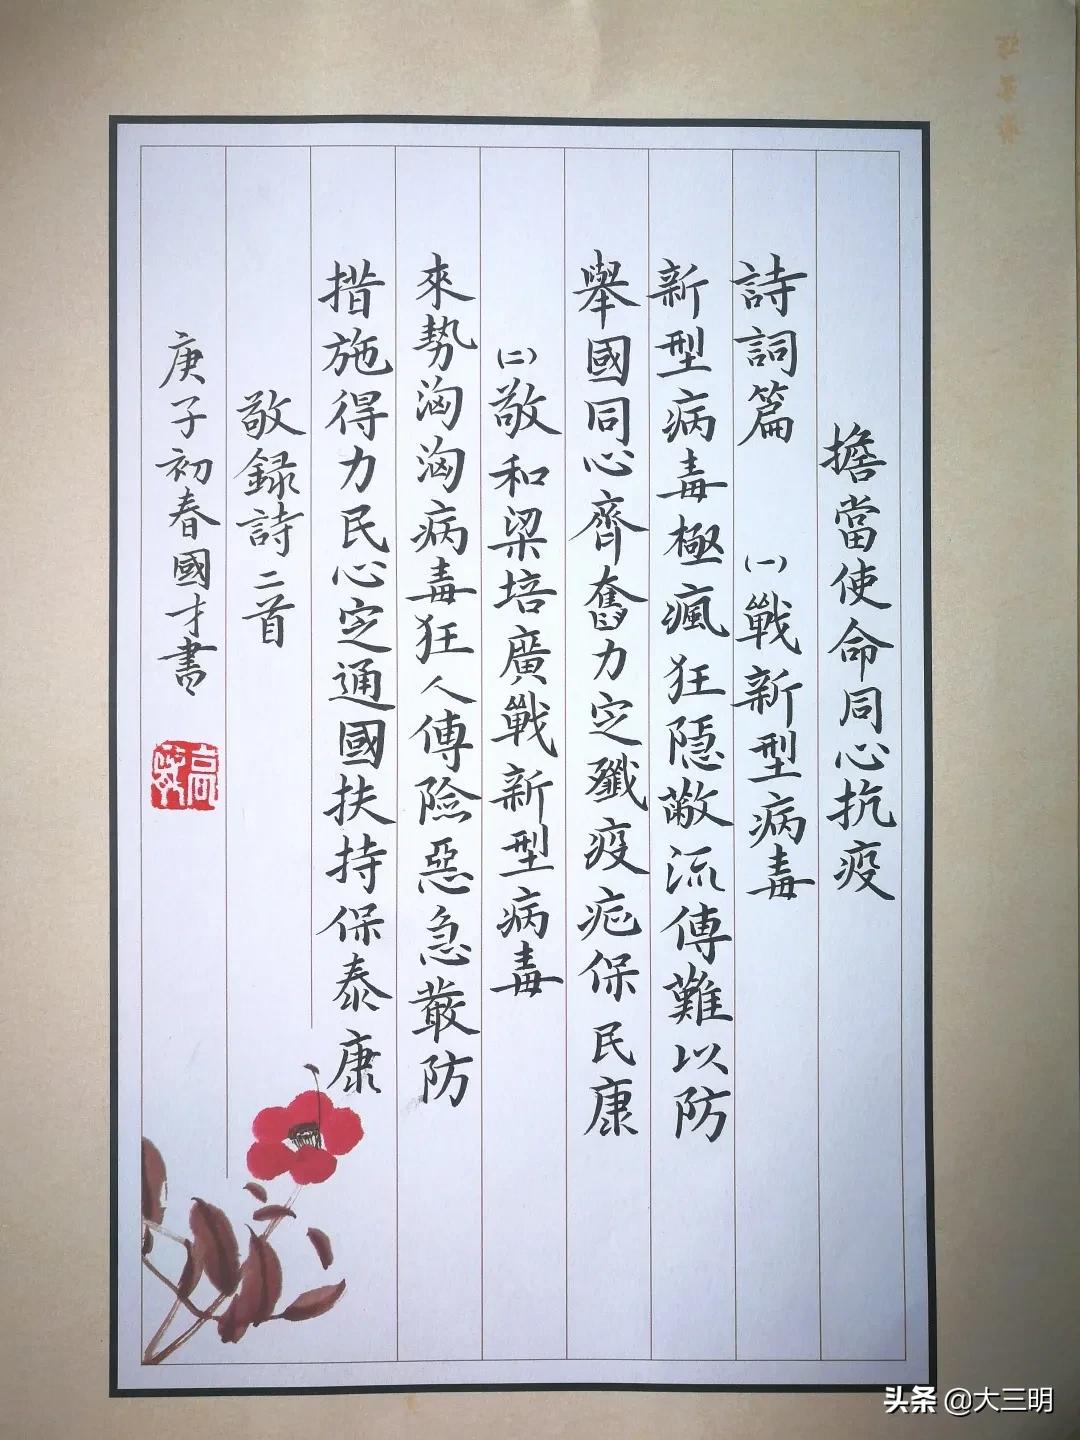 擔當使命同心抗疫
詩詞篇 (一)戰新型病毒
新型病毒極瘋狂隱蔽流傳難以防
舉國同心齊奮力定殲疫疟保民康
(二)敬和梁培廣戰新型病毒
來勢洶洶病毒狂人傳險惡急嚴防
措施得力民心定通國扶持保泰康
敬録詩二首
庚子初春國才書
头条 @大三明